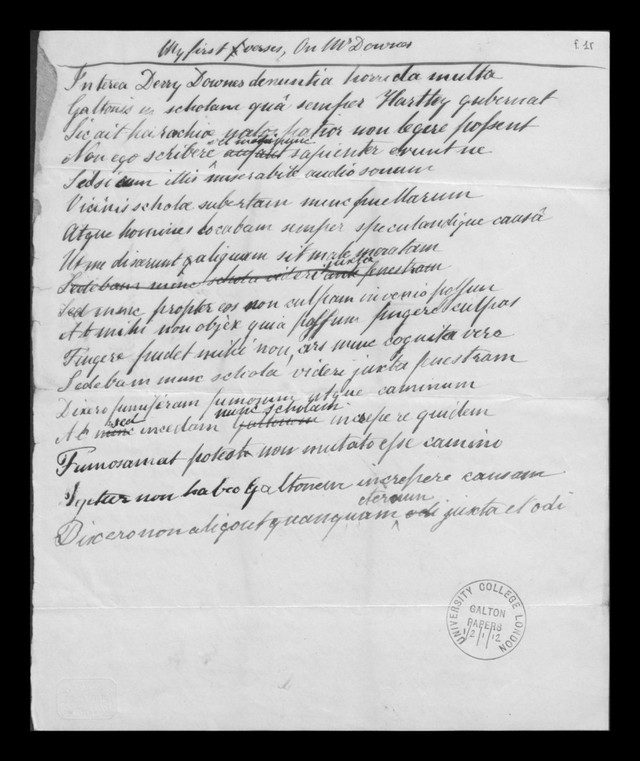 My first verses, On Mr Downes
f. 1r
Interea Derry Downes denuntia horrida multa
Galtonis in scholam quâ semper Hartley gubernat
Sic ait patior non legere possent
Non ego scribere sapienter erunt ne
Sed si cum illis miserabile audio sonum
Vicinis schola subertam nunc puellarum
Atque homines locabam semper speculandique causâ
Ut me dixerunt aliquam sit male moratam
juxta
Sedebam nunc schola videri ante fenestram
Sed nunc propter eos non culpam invenio possum
At mihi non objex quia possum fingere culpas
Fingere pudet mihi non, ars nunc cognita vero
Sedebam nunc schola videre juxta fenestram
Dixero fumosum atque caminum
sed nunc scholam
At nunc incedam Galtonem increpere quidem
Fumosam at potest non mutato esse camino
non habeo Galtonem increpere causam
iterum
Dixero non aligout quanquam odi juxta et odi
UNIVERSITY COLLEGE LONDON
GALTON
PAPERS
1/2/1/12